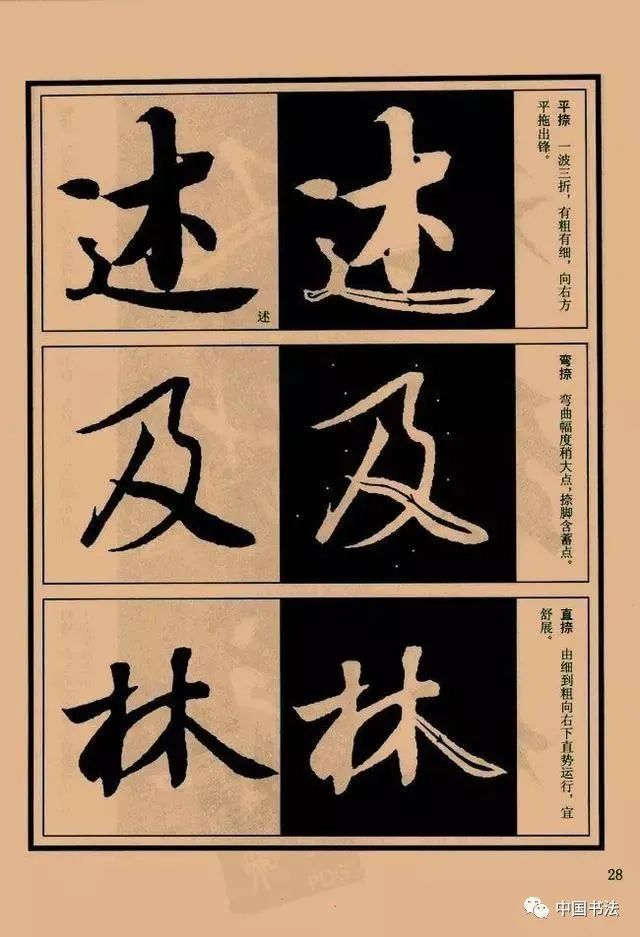 述
述
述
平捺　一波三折，有粗有细，向右方
平拖出锋。
及
及
弯捺　弯曲幅度稍大点，捺脚含蓄点。
林
林
直捺　由细到粗向右下直势运行，宜
舒展。
28
中国书法